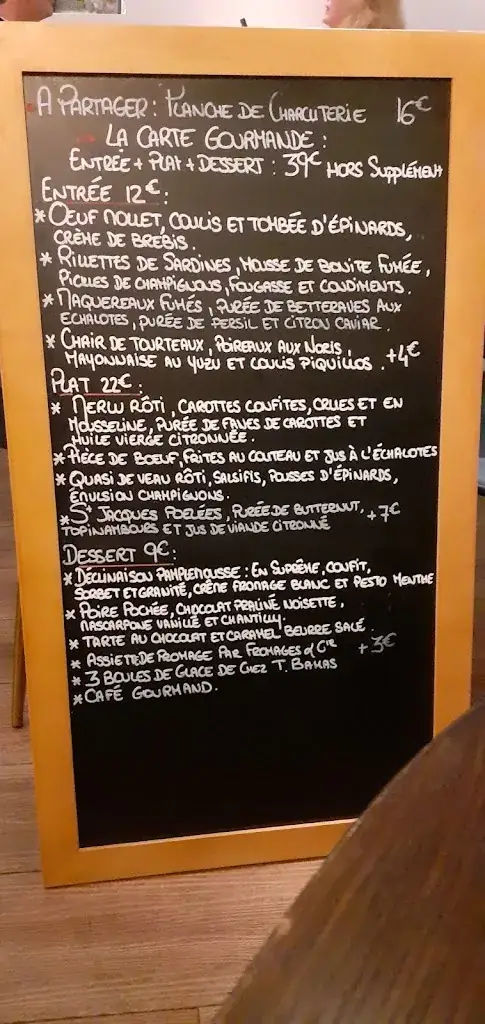 A PARTAGER : PLANCHE DE CHARCUTERIE 16€
LA CARTE GOURMANDE :
ENTRÉE + PLAT + DESSERT : 39€ HORS SUPPLÉMENT
ENTRÉE 12€ :
* OEUF MOLLET, COULIS ET TOMBÉE D'ÉPINARDS,
CRÈME DE BREBIS.
* RILLETTES DE SARDINES, MOUSSE DE BONITE FUMÉE,
PICKLES DE CHAMPIGNONS, FOUGASSE ET CONDIMENTS.
* MAQUEREAUX FUMÉS, PURÉE DE BETTERAVES AUX
ECHALOTES, PURÉE DE PERSIL ET CITRON CAVIAR.
* CHAIR DE TOURTEAUX, POIREAUX AUX NORIS,
MAYONNAISE AU YUZU ET COULIS PIQUILLOS. +4€
PLAT 22€ :
* MERLU RÔTI, CAROTTES CONFITES, CRUES ET EN
MOUSSELINE, PURÉE DE FANES DE CAROTTES ET
HUILE VIERGE CITRONNÉE.
* PIÈCE DE BOEUF, FRITES AU COUTEAU ET JUS À L'ÉCHALOTES
* QUASI DE VEAU RÔTI, SALSIFIS, POUSSES D'ÉPINARDS,
ÉMULSION CHAMPIGNONS.
* ST JACQUES POELÉES, PURÉE DE BUTTERNUT, +7€
TOPINAMBOURS ET JUS DE VIANDE CITRONNÉ
DESSERT 9€ :
* DÉCLINAISON PAMPLEMOUSSE : EN SUPRÊME, CONFIT,
SORBET ET GRANITÉ, CRÈME FROMAGE BLANC ET PESTO MENTHE
* POIRE POCHÉE, CHOCOLAT PRALINÉ NOISETTE,
MASCARPONE VANILLE ET CHANTILLY.
* TARTE AU CHOCOLAT ET CARAMEL BEURRE SALÉ.
* ASSIETTE DE FROMAGE PAR FROMAGES & CIE +3€
* 3 BOULES DE GLACE DE CHEZ T. BAMAS
* CAFÉ GOURMAND.